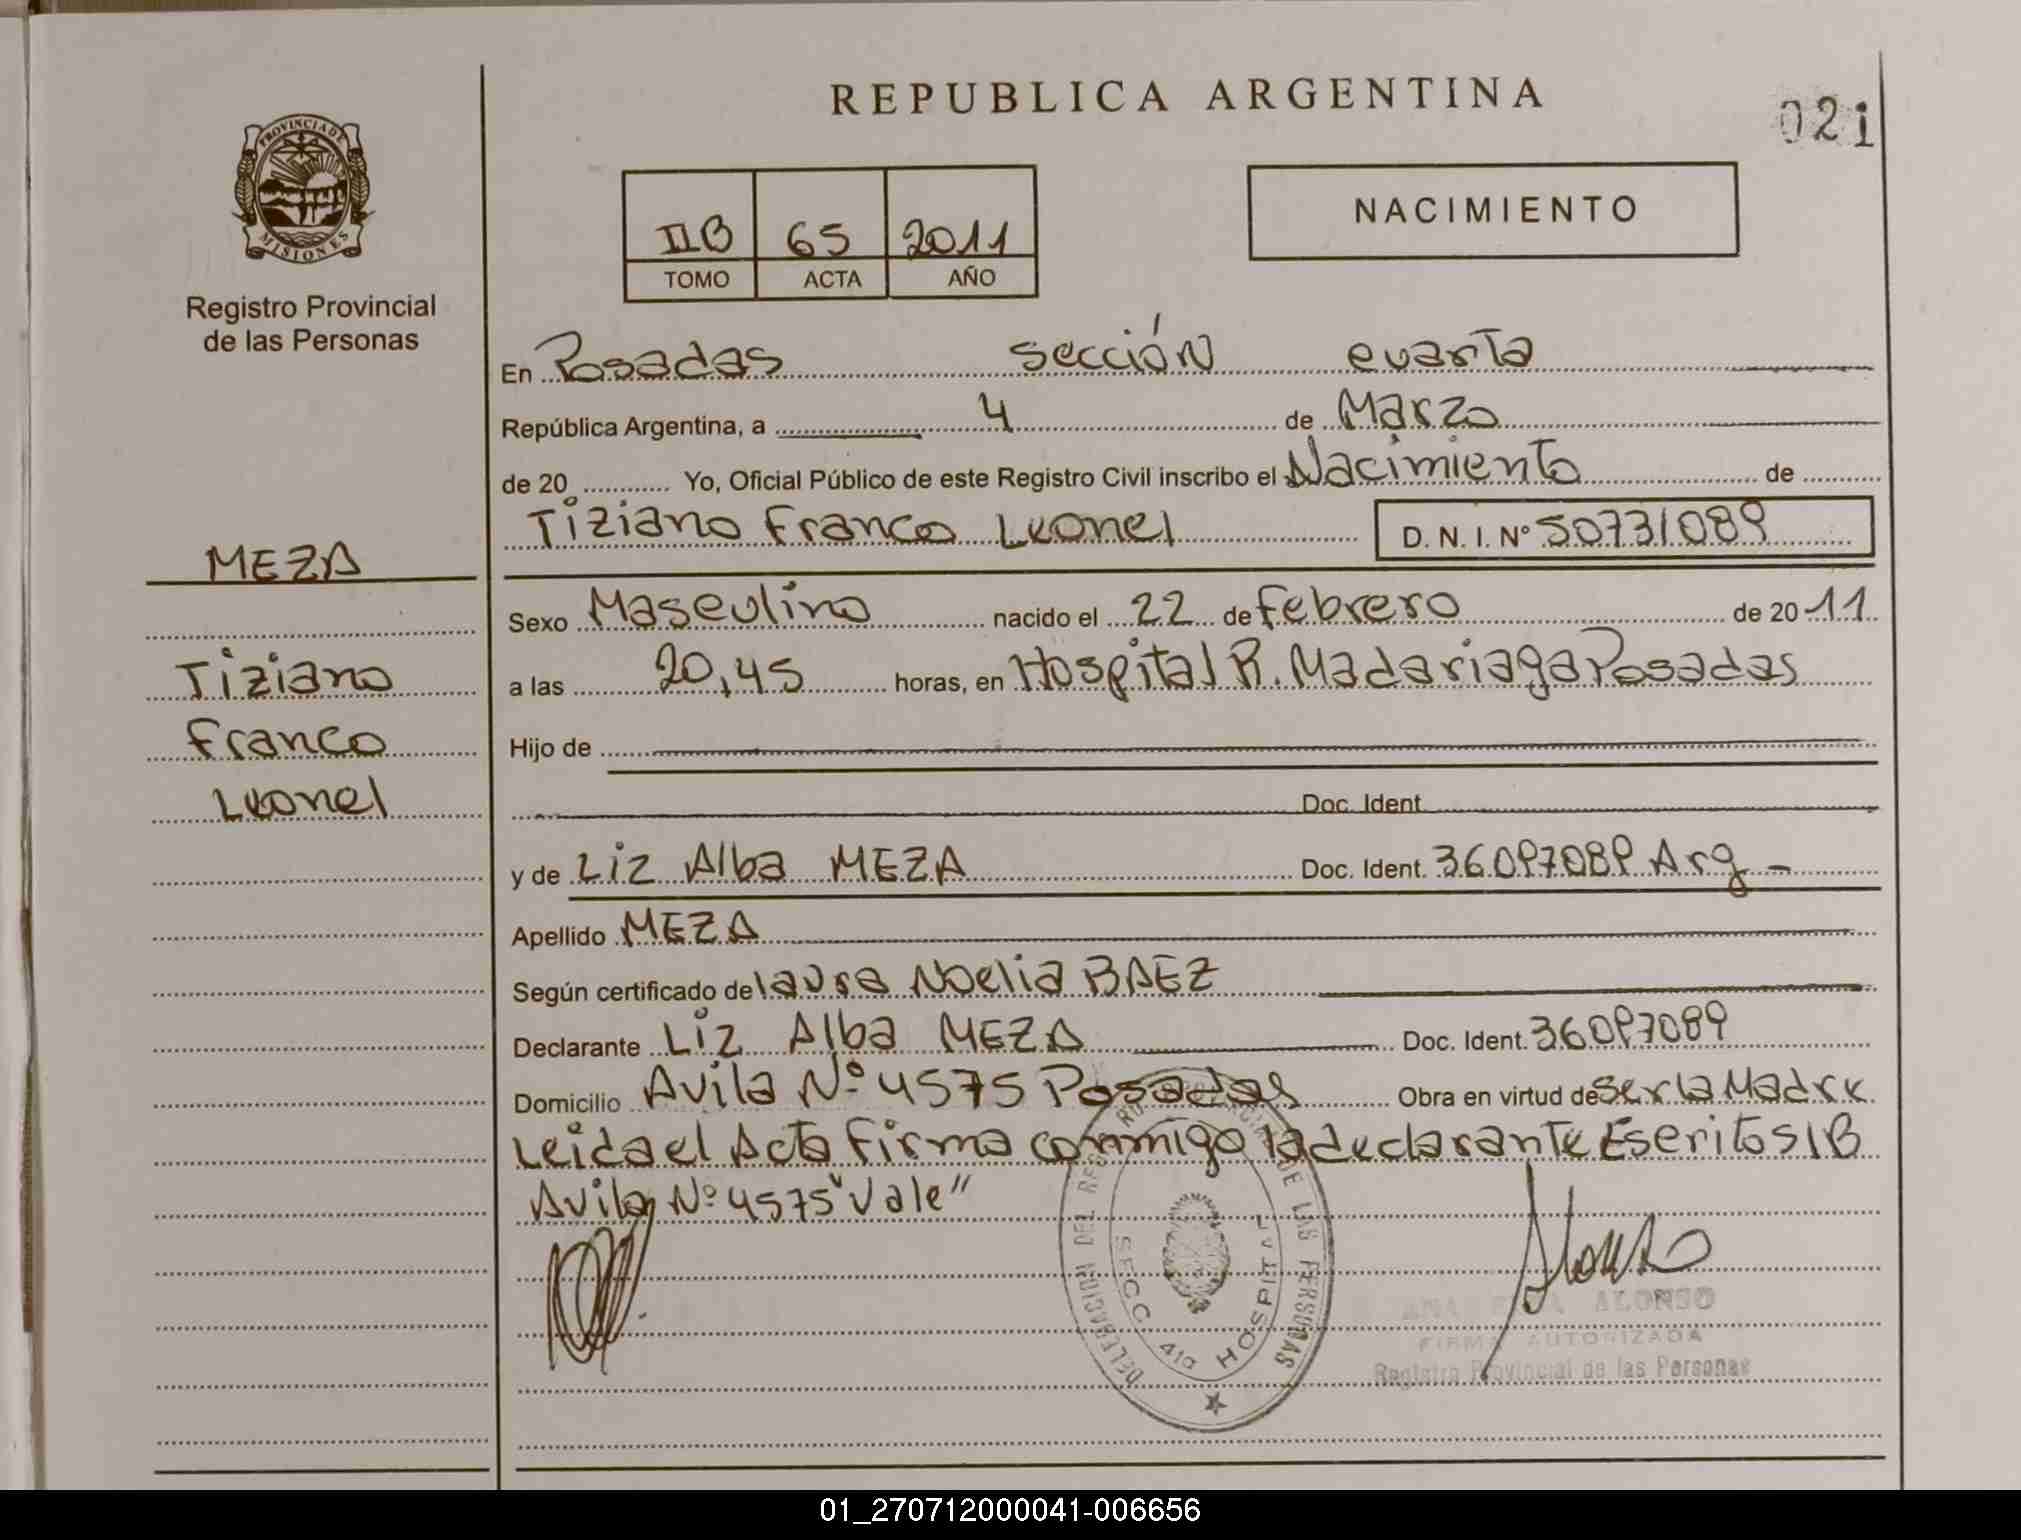 REPUBLICA ARGENTINA
021
PROVINCIA DE
MISIONES
Registro Provincial
de las Personas
IIB 65 2011
TOMO ACTA AÑO
NACIMIENTO
En Posadas sección cuarta
República Argentina, a 4 de Marzo
de 20 Yo, Oficial Público de este Registro Civil inscribo el Nacimiento de
Tiziano Franco Leonel D. N. I. Nº 50731089
MEZA
Tiziano
Franco
Leonel
Sexo Masculino nacido el 22 de Febrero de 2011
a las 20,45 horas, en Hospital R. Madariaga Posadas
Hijo de
y Doc. Ident.
y de Liz Alba MEZA Doc. Ident. 36097089 Arg -
Apellido MEZA
Según certificado de laura Noelia BAEZ
Declarante Liz Alba MEZA Doc. Ident. 36097089
Domicilio Avila Nº 4575 Posadas Obra en virtud de ser la Madre
Leida el Acta Firma conmigo la declarante Escritos/B
Avila Nº 4575 "Vale"
DELEGACION DEL DE LAS PERSONAS
SECC 4ta HOSPITAL
Alonso
ALONSO
FIRMA AUTORIZADA
Registro Provincial de las Personas
01_270712000041-006656